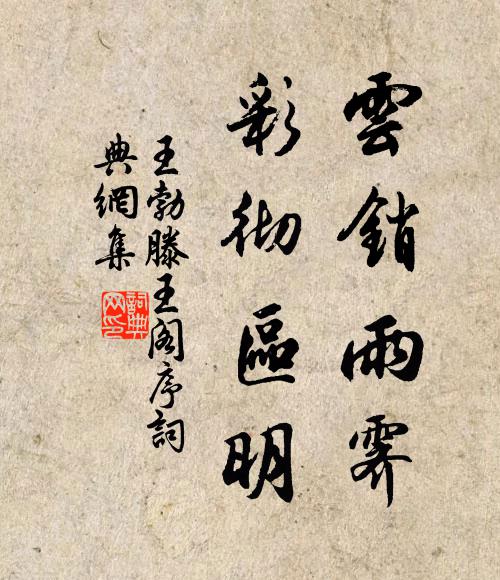 雲銷雨霽
彩彻區明
王勃滕王阁序詞
典網集
詞典网印